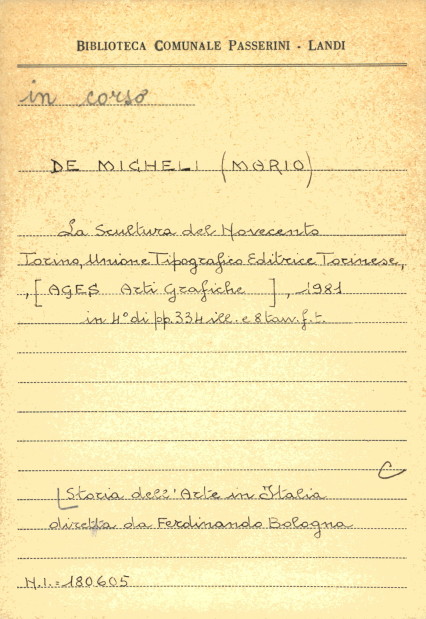 BIBLIOTECA COMUNALE PASSERINI - LANDI
in corso
DE MICHELI (MARIO)
La Scultura del Novecento
Torino, Unione Tipografico Editrice Torinese,
, [AGES Arti Grafiche ] , 1981
in 4° di pp. 334 ill. e 8 tav. f. t.
C
[Storia dell'Arte in Italia
diretta da Ferdinando Bologna
N.I. = 180605